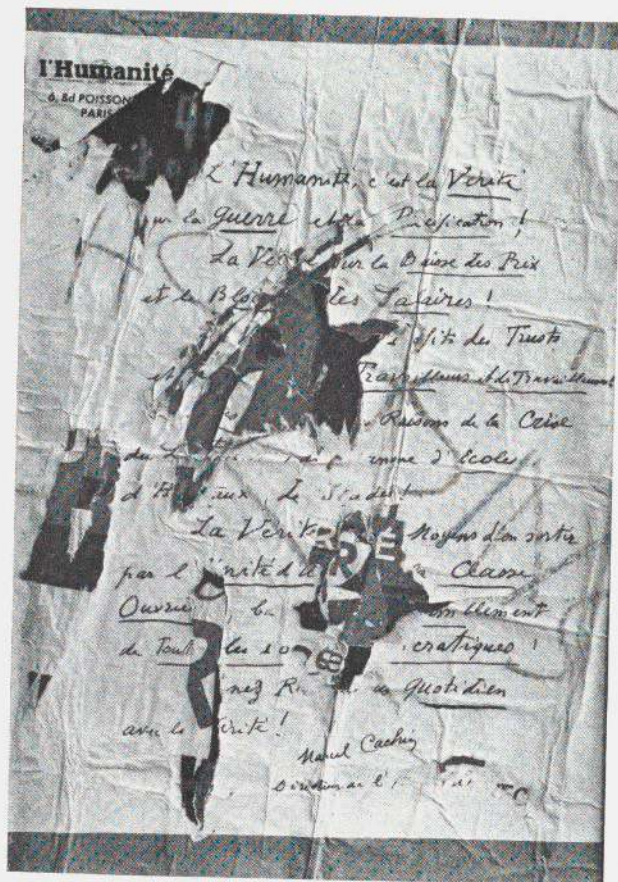 l'Humanité
6, Bd POISSON
PARIS
L'Humanité, c'est la Vérité
sur la Guerre et la Pacification !
La Vé sur la Baisse des Prix
et le Blo des Salaires !
fits des Trusts
et Travailleurs et de Travailleuses
Raisons de la Crise
du d'Ecoles,
d'H aux, de Stades !
La Vérité Moyens d'en sortir
par l'Unité d la Classe
Ouvriè ba emblement
de Tout les cratiques !
nez R quotidien
avec la Vérité !
Marcel Cachin
Directeur de l'